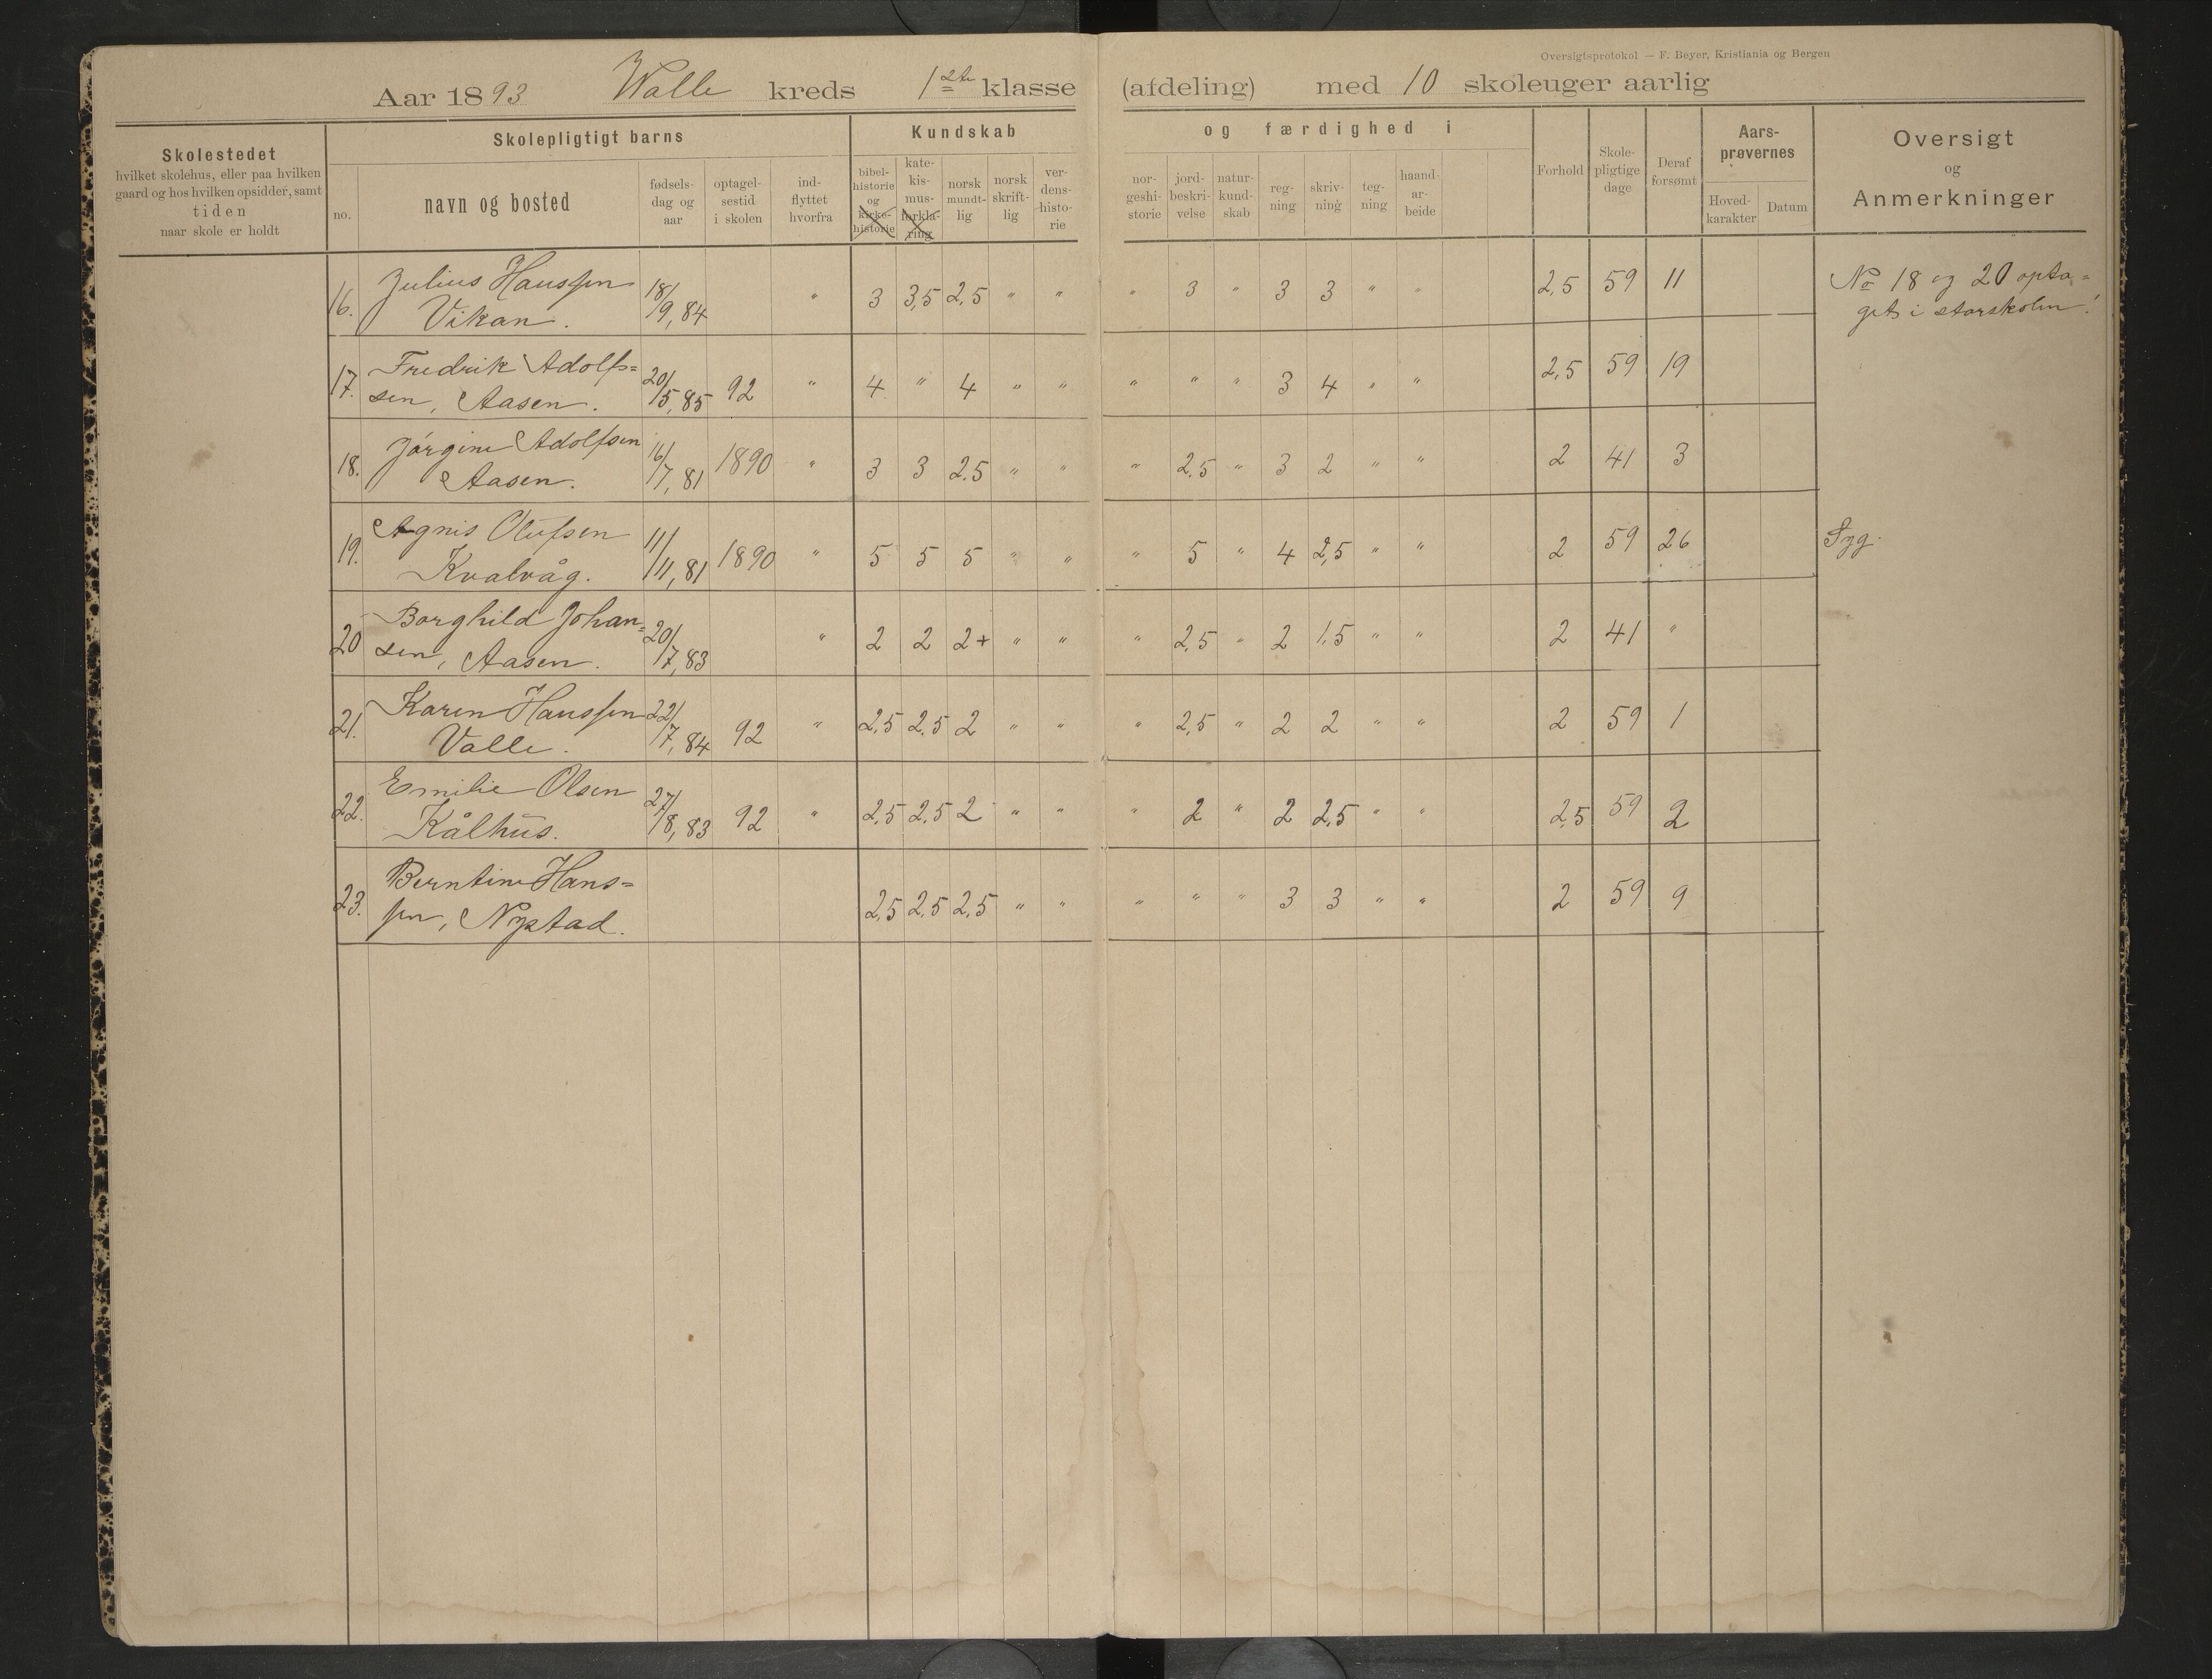 Oversigtsprotokol — F. Beyer, Kristiania og Bergen
Aar 1893 Walle kreds 1ste klasse (afdeling) med 10 skoleuger aarlig
Skolestedet
hvilket skolehus, eller paa hvilken
gaard og hos hvilken opsidder, samt
tiden
naar skole er holdt
Skolepligtigt barns
no.
navn og bosted
fødsels-
dag og
aar
optagel-
sestid
i skolen
ind-
flyttet
hvorfra
Kundskab
bibel-
historie
og
kirke-
historie
kate-
kis-
mus-
forkla-
ring
norsk
mundt-
lig
norsk
skrift-
lig
ver-
dens-
histo-
rie
og færdighed i
nor-
geshi-
storie
jord-
beskri-
velse
natur-
kund-
skab
reg-
ning
skriv-
ning
teg-
ning
haand-
ar-
beide
Forhold
Skole-
pligtige
dage
Deraf
forsømt
Aars-
prøvernes
Hoved-
karakter
Datum
Oversigt
og
Anmerkninger
16. Julius Hanssen 18/9,84 " 3 3,5 2,5 " " " 3 " 3 3 " " 2,5 59 11 No 18 og 20 opta=
Vikan. get i storskolen!
17. Fredrik Adolfs= 20/5,85 92 " 4 " 4 " " " " " 3 4 " " 2,5 59 19
sen, Aasen.
18. Jørgine Adolfsen 16/7,81 1890 " 3 3 2.5 " " " 2,5 " 3 2 " " 2 41 3
Aasen.
19. Agnis Olufsen 11/11,81 1890 " 5 5 5 " " " 5 " 4 2,5 " " 2 59 26 Syg.
Kvalvåg.
20 Borghild Johan= 20/7,83 " 2 2 2+ " " " 2,5 " 2 1,5 " " 2 41 "
sen, Aasen.
21. Karen Hanssen 22/7,84 92 " 2,5 2,5 2 " " " 2,5 " 2 2 " " 2 59 1
Valle.
22. Emilie Olsen 27/8,83 92 " 2,5 2,5 2 " " " 2 " 2 2,5 " " 2,5 59 2
Kålhus.
23. Berntine Hans= 2,5 2,5 2,5 " " " " " 3 3 " " 2 59 9
sen, Nystad.